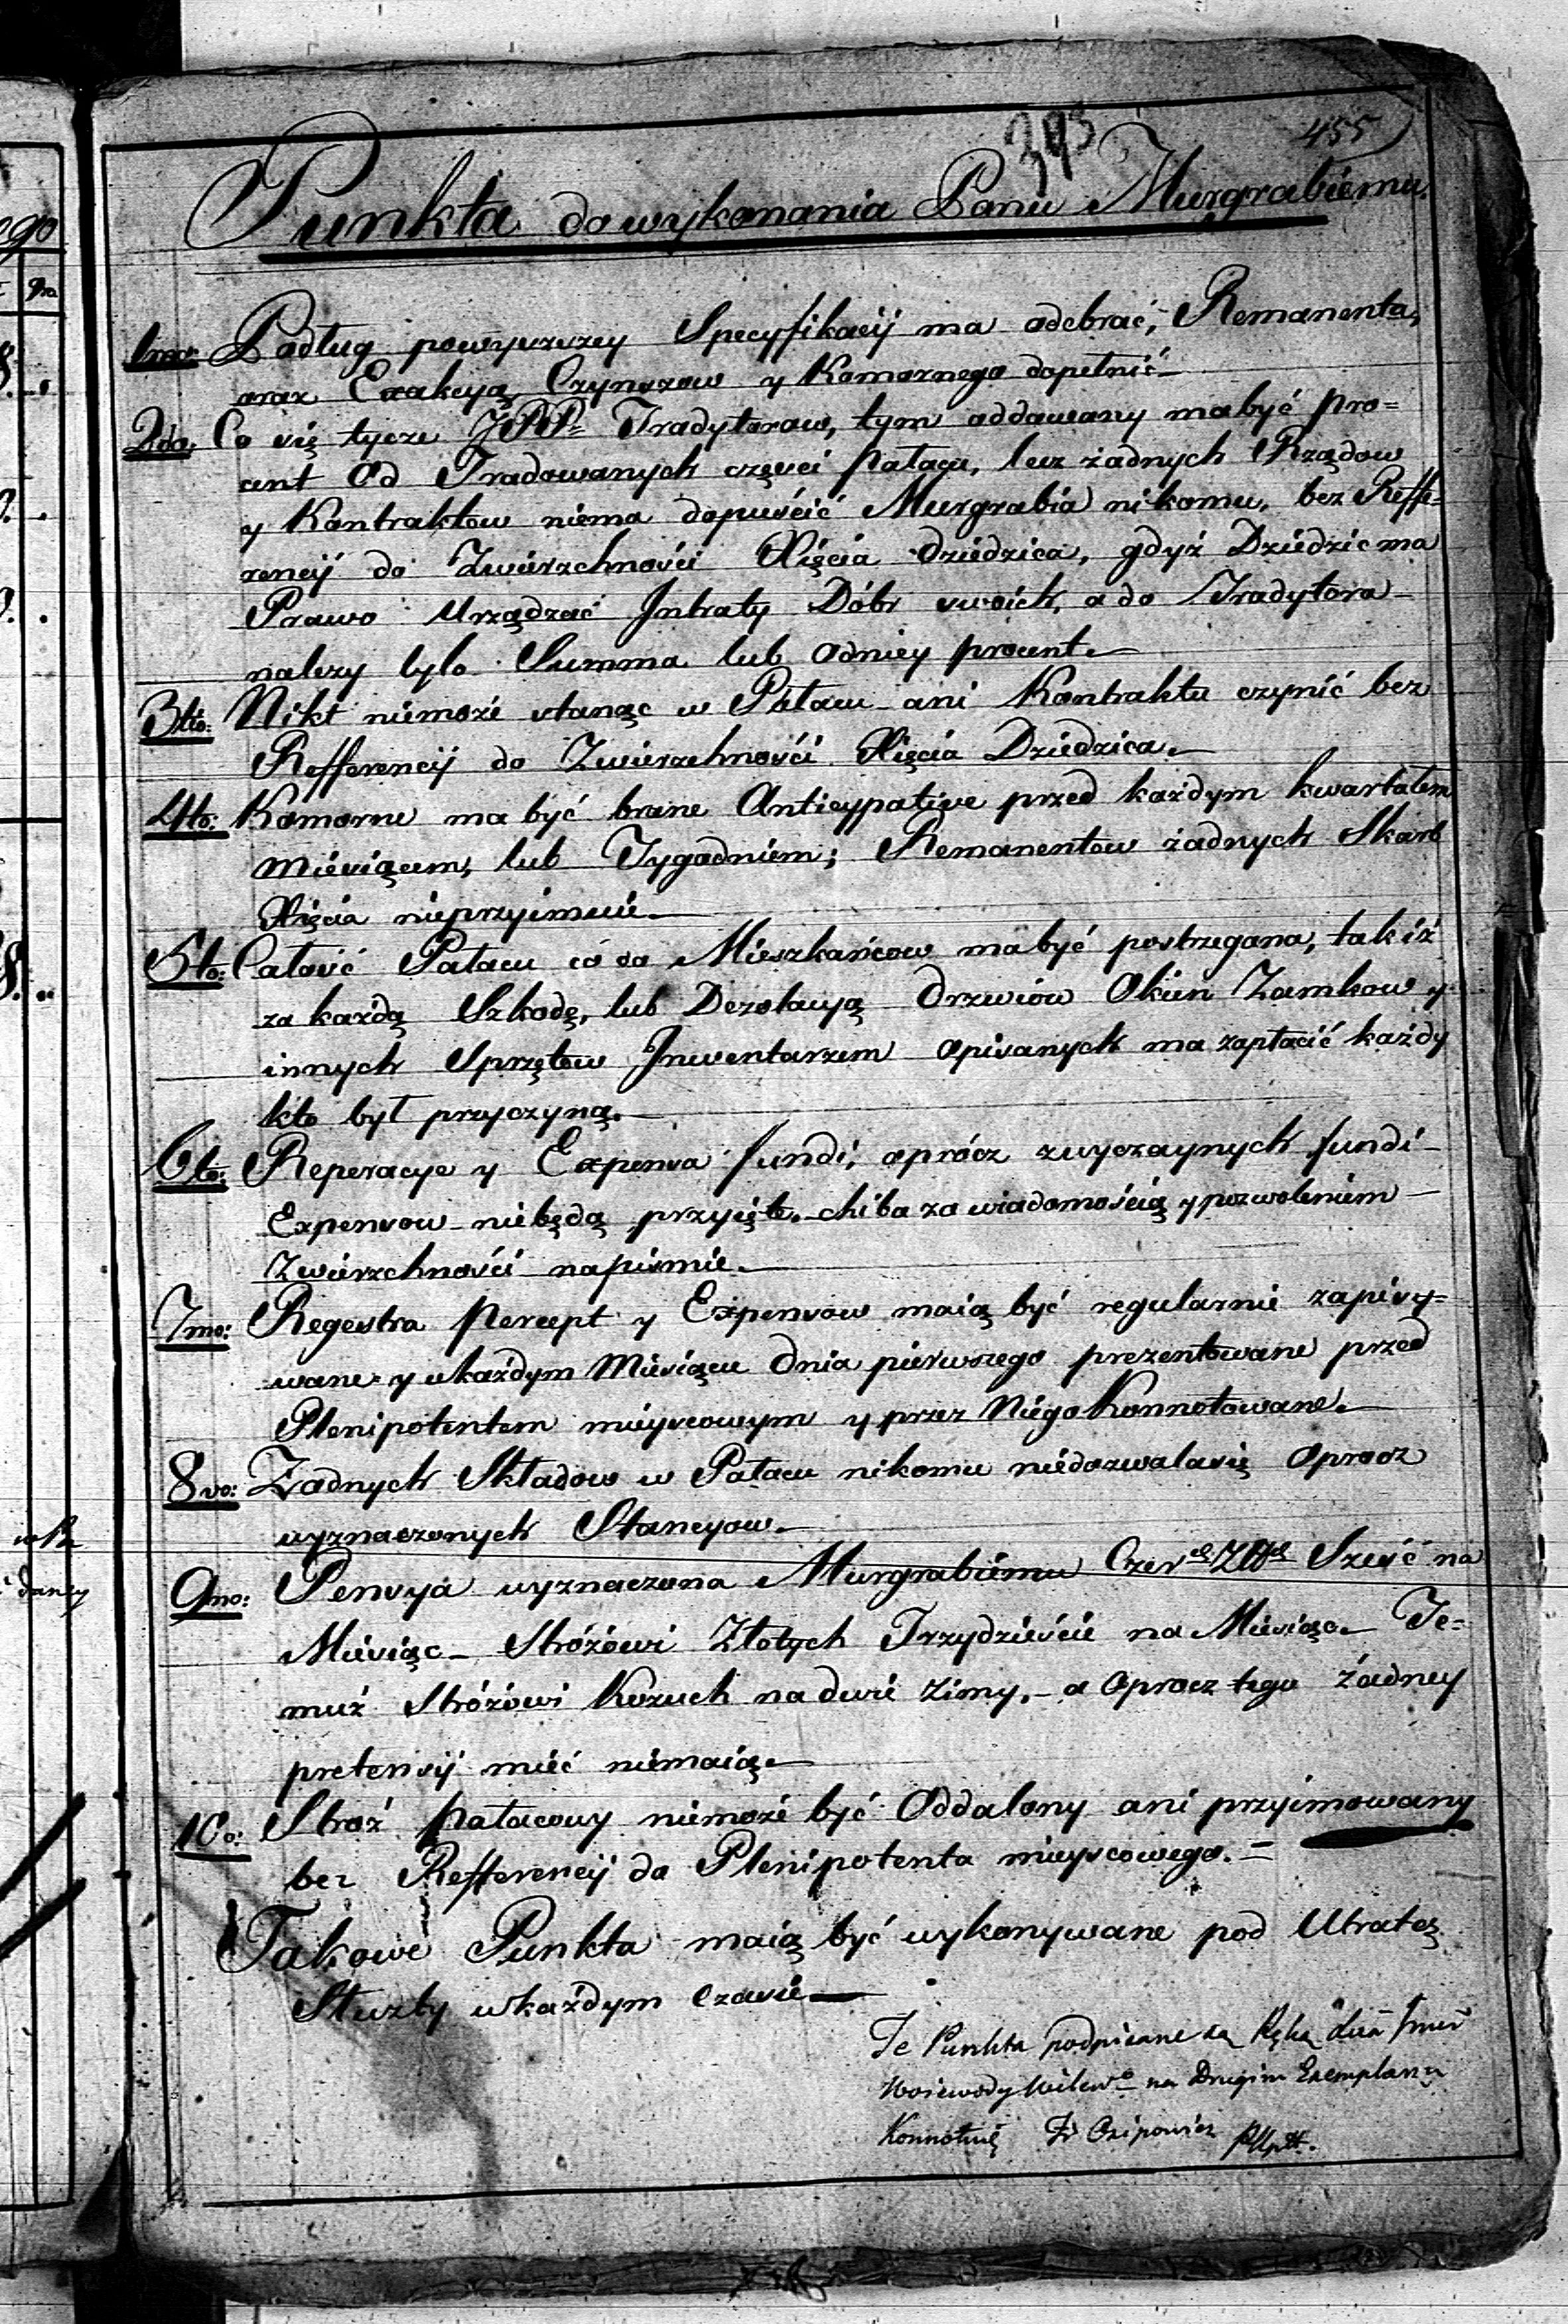 455
393
Punkta do wykonania Panu Murgrabiemu.
1mo: Podług powyzszey Specyfikacij ma odebrać, Remanenta,
oraz Exakcyą Czynszow y Komornego dopełnić
2do. Co się tycze JPP. Tradytorow, tym oddawany ma być pro=
cent Od Tradowanych częsci Pałacu, lecz żadnych Rządow
y Kontraktow niema dopuścić Murgrabia nikomu, bez Reffe-
rencij do Zwierzchnosci Xięcia Dziedzica, gdyż Dziedzic ma
Prawo Urządzać Jntraty Dóbr swoich, a do Tradytora
nalezy tylo Summa lub Odniey procent.
3tio: Nikt niemoże stanąc w Pałacu ani Kontraktu czynić bez
Refferencij do Zwierzchności Xięcia Dziedzica.
4to: Komorne ma być brane Anticypatiue przed każdym kwartałem
Miesiącem, lub Tygodniem; Remanentow żadnych Skarb
Xięcia nieprzyimuie.
5to: Całość Pałacu co do Mieszkańcow ma być postrzegana, tak iż
za każdą Szkodę, lub Dezolacyą Drzwiow Okien Zamkow y
innych Sprzętow Jnwentarzem opisanych ma zapłacić każdy
kto był przyczyną.
6to: Reperacye y Expensa fundi, oprócz zwyczaynych fundi
Expensow niebędą przyięte. chiba za wiadomością y pozwoleniem
Zwierzchności napismie.
7mo: Regestra Percept y Expensow maią być regularnie zapisy=
wane y w każdym Miesiącu Dnia pierwszego prezentowane przed
Plenipotentem mieyscowym y przez Niego Konnotowane.
8vo: Żadnych Składow w Pałacu nikomu niedozwala się oprocz
wyznaczonych Stancyow.
9no: Pensya wyznaczona Murgrabiemu Czer Zł Sześć na
Miesiąc Stróżowi Złotych Trzydzieście na Miesiąc Te=
muż Stróżowi Kozuch na dwie Zimy, a oprocz tego żadney
pretensij mieć niemaią.
10o: Stroż Pałacowy niemoże być Oddalony ani przyimowany
bez Refferencij do Plenipotenta mieyscowego.=
Takowe Punkta maią być wykonywane pod Utratą
Służby w każdym Czasie
Te Punkta podpisane są Ręką
Woiewody Wileo na Drugim Exemplarzu
Konnotuię Osipowicz